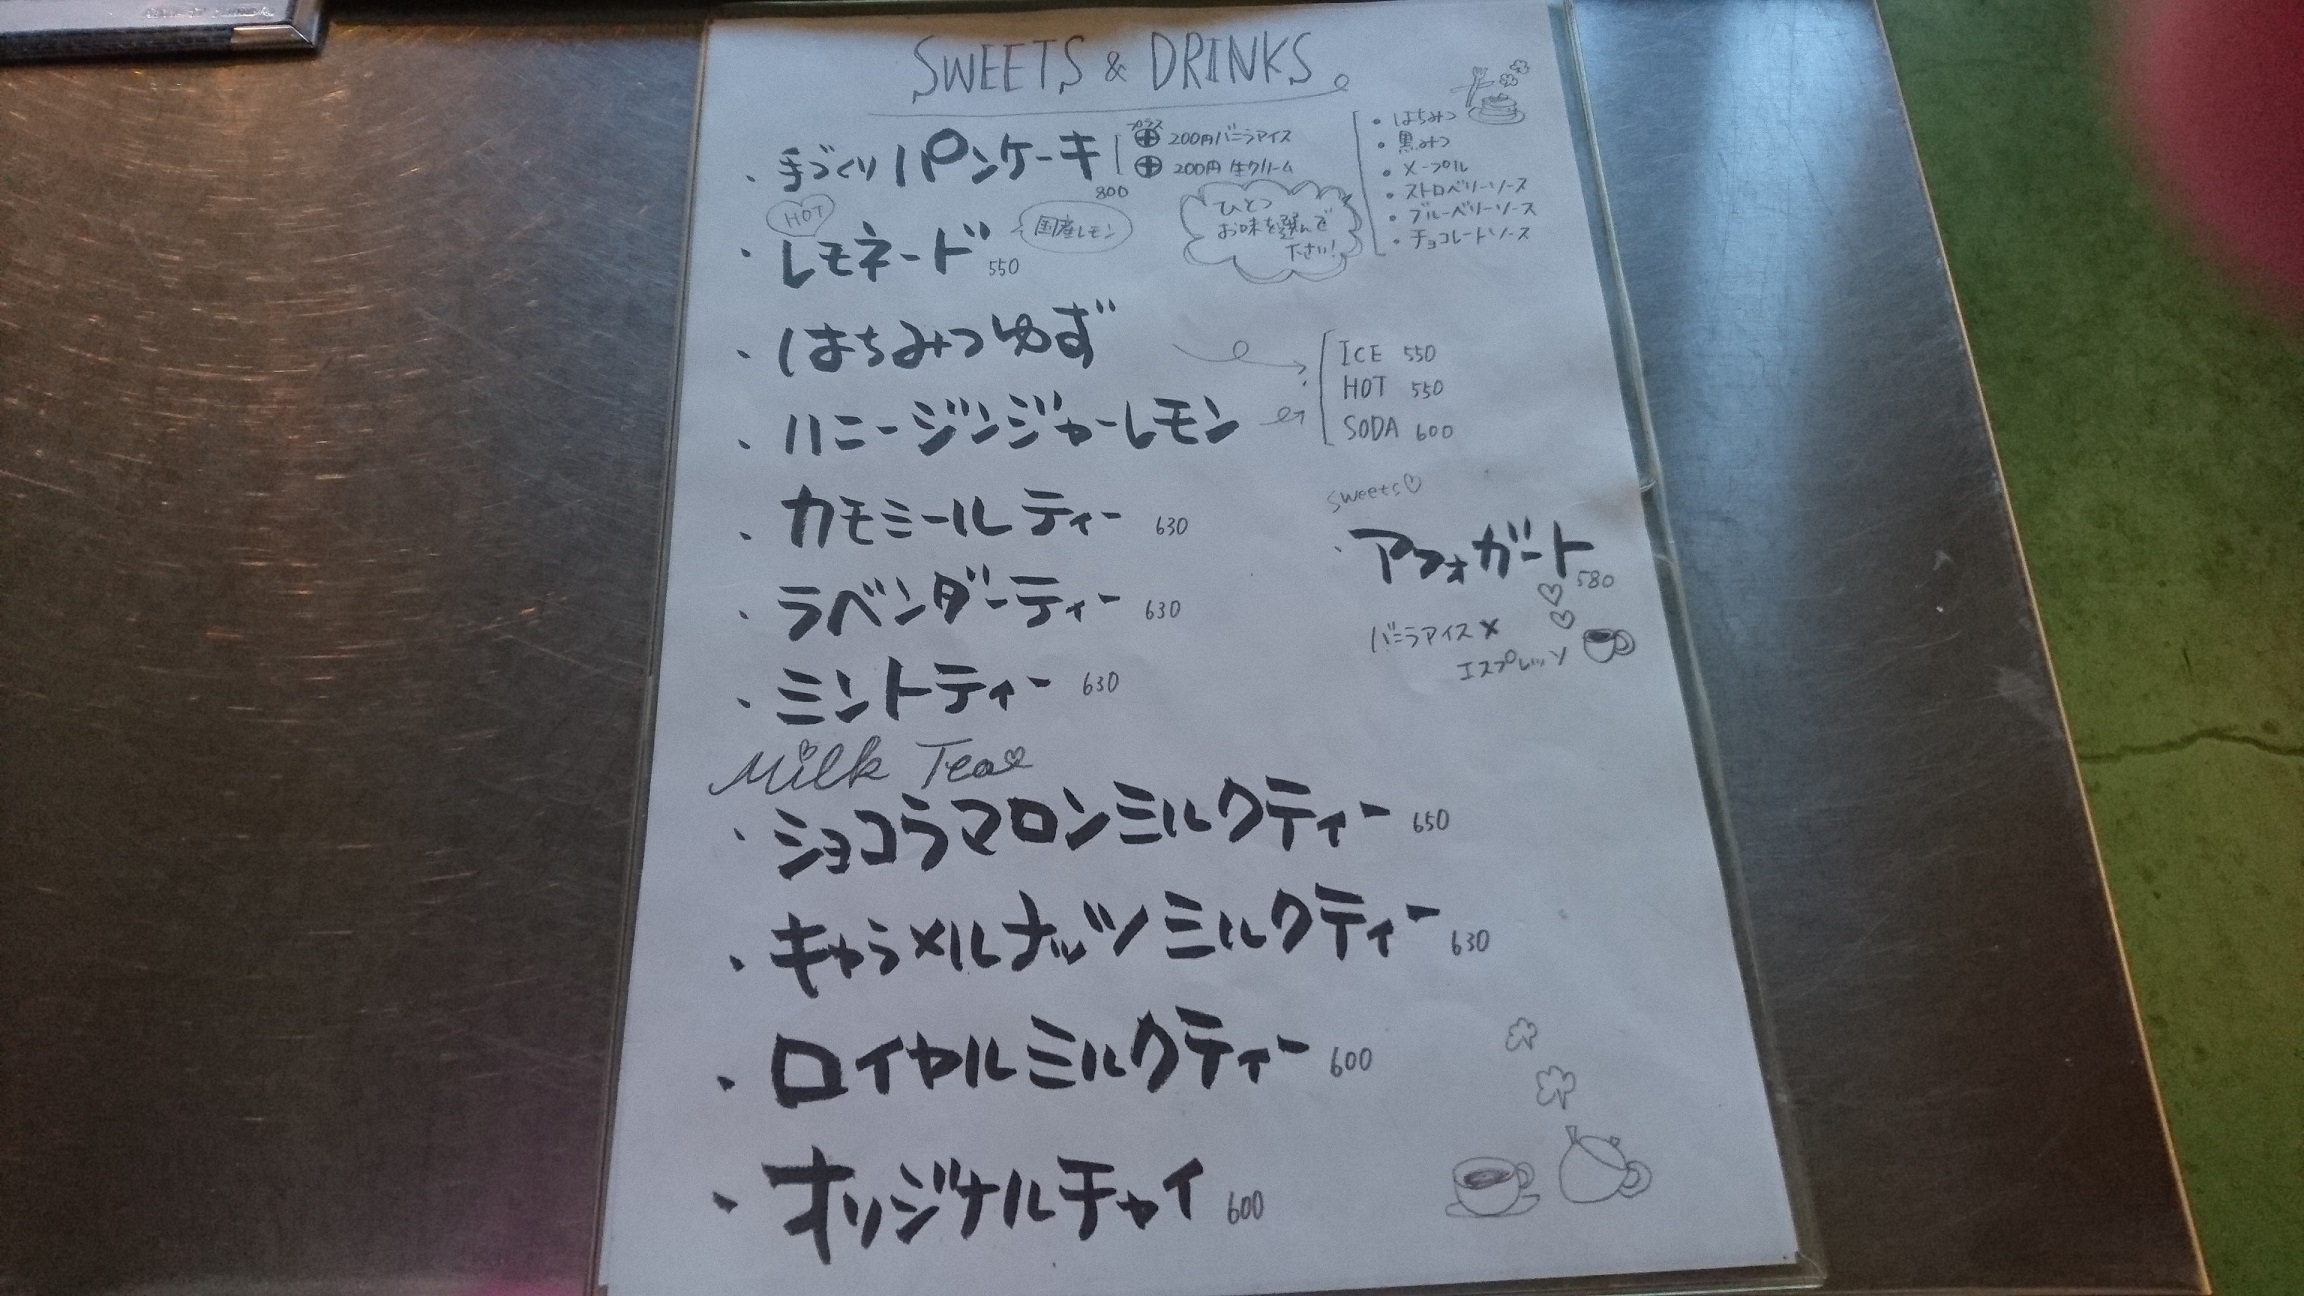 SWEETS & DRINKS
・手づくりパンケーキ 800
プラス
⊕ 200円バニラアイス
⊕ 200円 生クリーム
ひとつ
お味を選んで
下さい!
・はちみつ
・黒みつ
・メープル
・ストロベリーソース
・ブルーベリーソース
・チョコレートソース
HOT
・レモネード 550
国産レモン
・はちみつゆず
・ハニージンジャーレモン
ICE 550
HOT 550
SODA 600
・カモミールティー 630
・ラベンダーティー 630
・ミントティー 630
sweets♡
・アフォガート 580
バニラアイス×
エスプレッソ
Milk Tea
・ショコラマロンミルクティー 650
・キャラメルナッツミルクティー 630
・ロイヤルミルクティー 600
・オリジナルチャイ 600